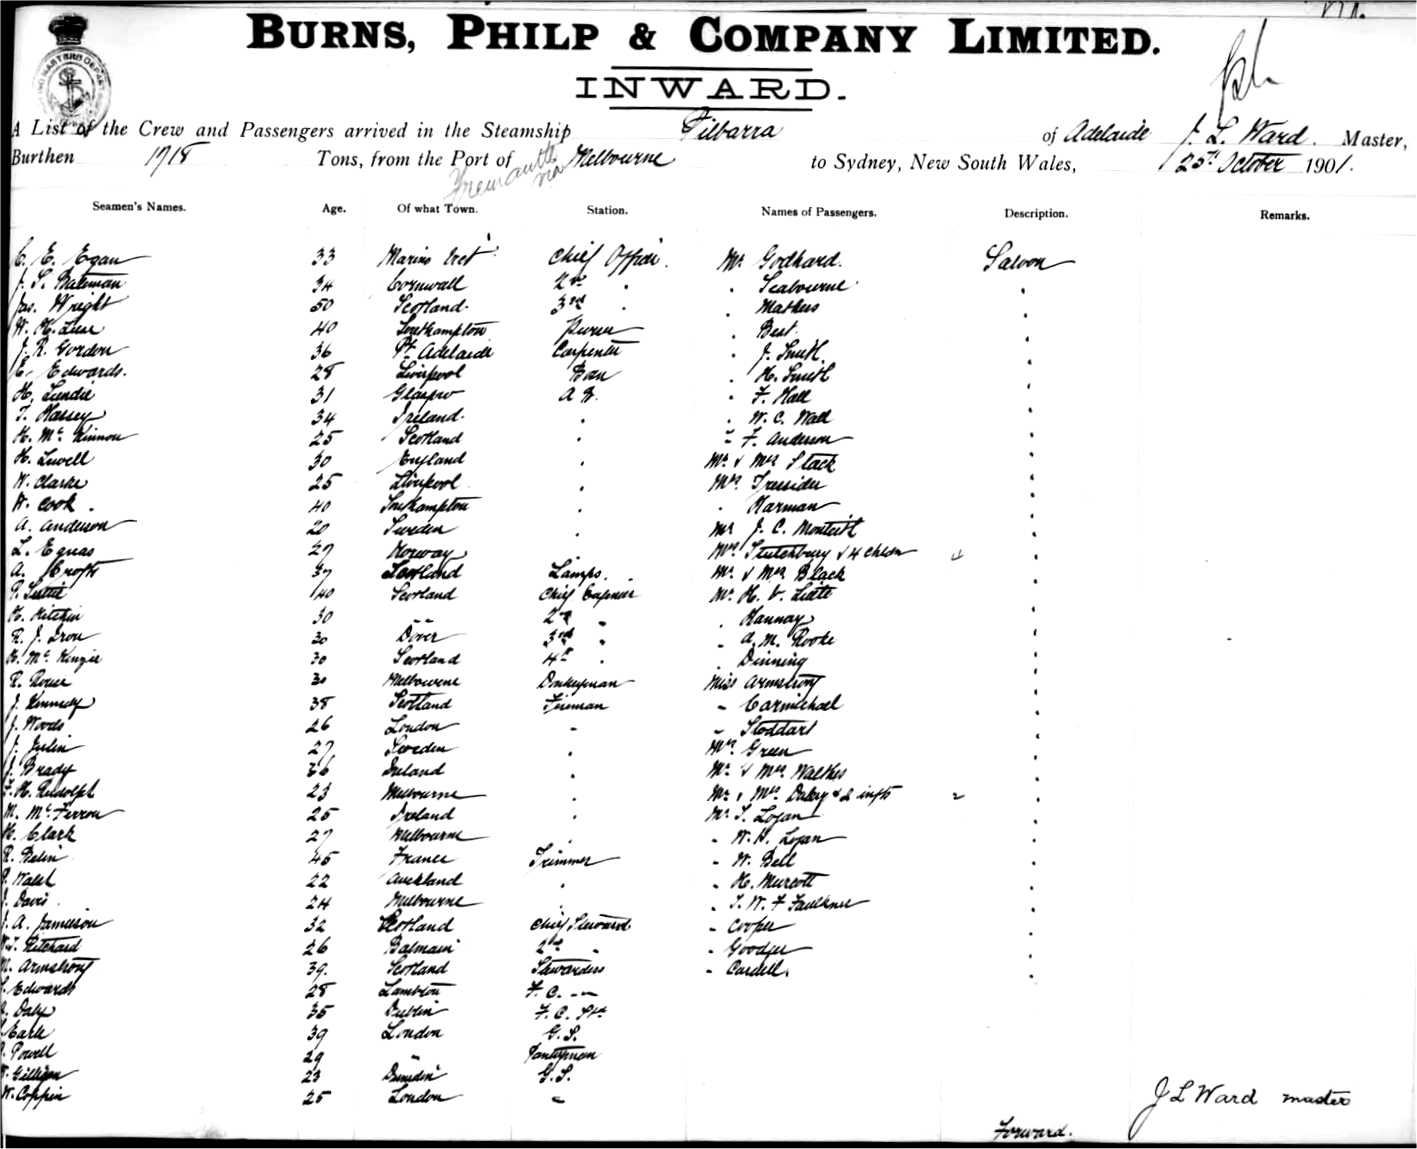 BURNS, PHILP & COMPANY LIMITED.
INWARD.
A List of the Crew and Passengers arrived in the Steamship Tilbarra of Adelaide J. L. Ward. Master,
Burthen 1718 Tons, from the Port of Fremantle via Melbourne to Sydney, New South Wales, 25th October 1901.
Seamen's Names. Age. Of what Town. Station. Names of Passengers. Description. Remarks.
C. E. Egan 33 Chief Mr. Godhard. Saloon
J. S. Bateman 34 Cornwall 2nd " Seabourne "
Jas. Wright 50 Scotland 3rd " " Mathers "
W. H. 40 Southampton Purser " Best "
J. R. Gordon 36 Pt. Adelaide Carpenter " J. Smith "
E. Edwards. 28 Liverpool " H. Smith "
H. Lundie 31 Glasgow A B. " F. Hall "
T. Hassey 34 Ireland " " W. C. Wall "
H. Mc. Kinnon 25 Scotland " " F. Anderson "
H. Lewell 30 England " Mr. & Mrs Stack "
W. Clarke 25 Liverpool " Mrs. Tressider "
W. Cook. 40 Southampton " " Harman "
A. Anderson 20 Sweden " Mr J. C. Monteith "
L. Egnas 27 Norway " Mrs. Stutchbury & 4 Chldn 4 "
A. Crofts 37 Scotland Lamps. Mr. & Mrs Black "
P. 40 Scotland Chief Mr. H. V. "
H. Kitchin 30 " " 2nd " " Hannay "
R. J. Iron 30 Dover 3rd " " A. M. Rooke "
H. Mc. Kenzie 30 Scotland 4th " " Dinning "
R. Rouse 30 Melbourne Donkeyman Miss Armstrong "
J. Kennedy 38 Scotland Fireman " Carmichael "
J. Woods 26 London " " Stoddart "
J. Julin 27 Sweden " Mrs. Green "
J. Brady 36 Ireland " Mr. & Mrs Walther "
F. H. Rudolph 23 Melbourne " Mr. & Mrs. Daley & 2 infts 2 "
M. Mc. Ferron 25 Ireland " Mr. S. Logan "
H. Clark 27 Melbourne " " W. H. Logan "
R. Belin 45 France Trimmer " W. Bell "
P. Walsh 22 Auckland " " H. Murcott "
J. Davis 24 Melbourne " " T. W. F. Faulkner "
J. A. Jamieson 32 Scotland Chief Steward " Cooper "
W. J. Pritchard 26 Balmain 2nd " " Goodger "
M. Armstrong 39. Scotland Stewardess " Cardell. "
Edwards 28 Lambton F. C. "
Daly 35 Dublin F. C. Std.
Earle 39 London G. S.
Powell 29 " Pantryman
W. Gilligan 23 Dunedin G. S.
W. Coppin 25 London "
J L Ward master
Forward.